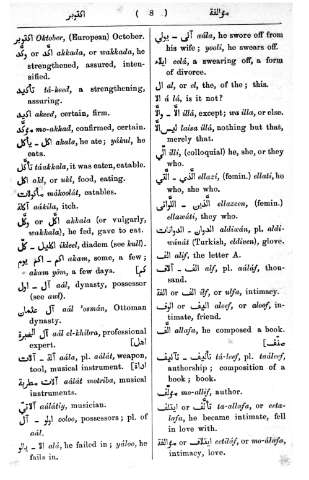 اكتوبر ( 8 ) مؤالفة
اكتوبر Oktobar, (European) October.
اكّد or وكّد akkada, or wakkada, he
strengthened, assured, inten-
sified.
تأكيد tá-keed, a strengthening,
assuring.
اكيد akeed, certain, firm.
مؤكّد mo-akkad, confirmed, certain.
اكل — يأكل akala, he ate; yókul, he
eats.
تأكّل táakkala, it was eaten, eatable.
اكل akl, or ukl, food, eating.
مأكولات mákoolát, eatables.
aákila, itch.
اكّل or وكّل akkala (or vulgarly,
wakkala), he fed, gave to eat.
اكليل — كل ikleel, diadem (see kull).
اكم — اكم يوم akam, some, a few;
akam yóm, a few days. [كم
آل — اول aál, dynasty, possessor
(see awl).
آل عثمان aál 'osmán, Ottoman
dynasty.
آل الخبرة aál el-khibra, professional
expert. [اهل
آلة — آلات aála, pl. aálát, weapon,
tool, musical instrument. [اداة
آلات مطربة aálát motriba, musical
instruments.
آلاتي aálátiy, musician.
اولو — آل ooloo, possessors; pl. of
aál.
alá, he failed in; yáloo, he
fails in.
آلى — يولي aála, he swore off from
his wife; yooli, he swears off.
ايلاء eelá, a swearing off, a form
of divorce.
ال al, or el, the, of the; this.
الا á lá, is it not?
الّا — والّا illá, except; wa illa, or else.
ليس الّا laisa illá, nothing but that,
merely that.
الّي illi, (colloquial) he, she, or they
who.
الّذي — الّتي ellazi, (femin.) ellati, he
who, she who.
الّذين — اللّواتي ellazeen, (femin.)
ellawáti, they who.
الدوان — الدوانات aldiwán, pl. aldi-
wánát (Turkish, eldiven), glove.
الف alif, the letter A.
الف — آلاف alf, pl. aáláf, thou-
sand.
الف or الفة ilf, or ulfa, intimacy.
اليف or الوف aleef, or aloof, in-
timate, friend.
الّف allafa, he composed a book.
[صنّف
تأليف — تآليف tá-leef, pl. taáleef,
authorship; composition of a
book; book.
مؤلّف mo-allif, author.
تألّف or ايتلف ta-allafa, or eeta-
lafa, he became intimate, fell
in love with.
ايتلاف or مؤالفة eetiláf, or mo-álafa,
intimacy, love.